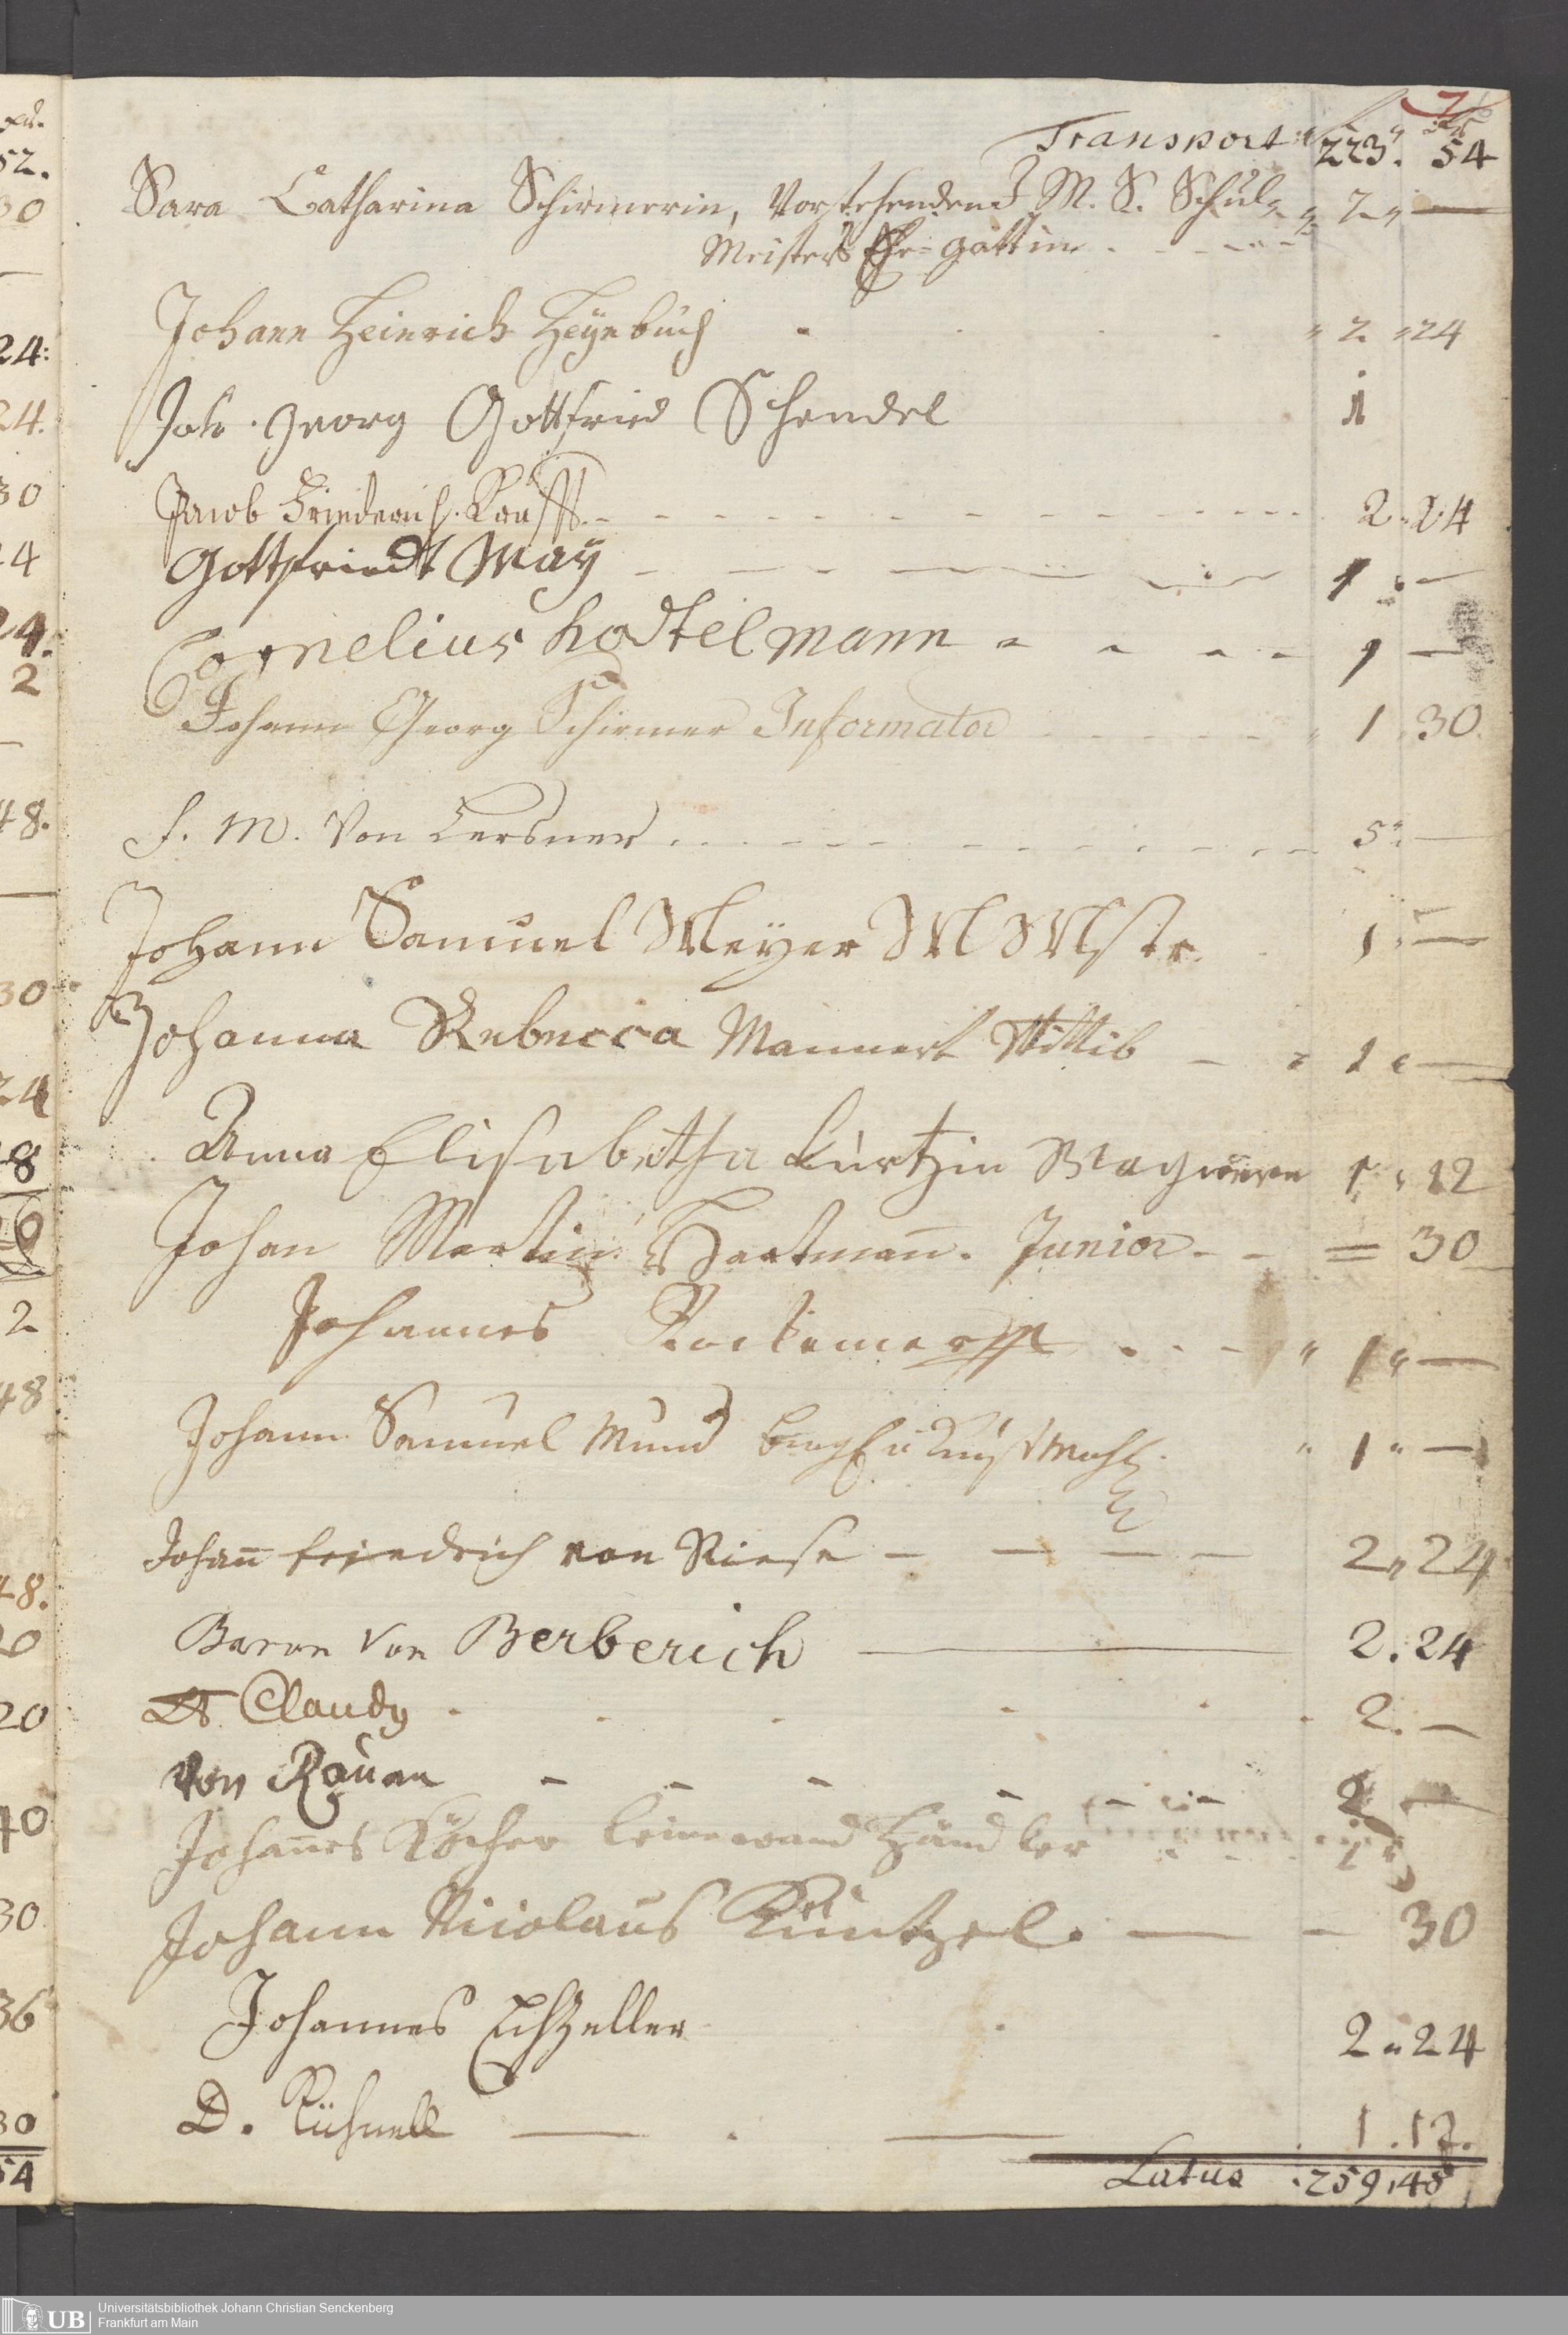 7
f xr
Transport 223. 54
Sara Catharina Schirmerin, Vorstehenden M. S. Schul- 2 „ —
Meisters Ehe-gattin
Johann Heinrich Heynbuch „ 2 „ 24
Joh. Georg Gottfried Schendel 1
Jacob Friederich Krafft 2. 24
Gottfriedt May 1 . —
Cornelius hodtelmann 1 —
Johann Georg Schirmer Informator 1 30
f. M. von Lersner 5 „ —
Johann Samuel Meyer M Mstr 1 „ —
Johanna Rebecca Mannert Wittib 1 „ —
Anna Elisabetha Kurtzin 1 „ 12
Johan Martin Hartmañ. Junior = 30
Johannes „ 1 „ —
Johann Samuel Mund „ 1 „ —
Johañ friedrich von Riese 2 „ 24
Baron von Berberich 2. 24
Dr. Claudy 2. —
von Rauen 2 —
Johañes Köcher leinewand Händler 1
Johann Nicolaus Küntzel. — 30
Johannes Echzeller 2 „ 24
D. Kühnell 1. 12.
Latus 259. 48
52.
30
24:
24.
30
24
24.
2
48.
30
24
8
2
48
48.
20
20
40
30
36
30
54
UB Universitätsbibliothek Johann Christian Senckenberg
Frankfurt am Main